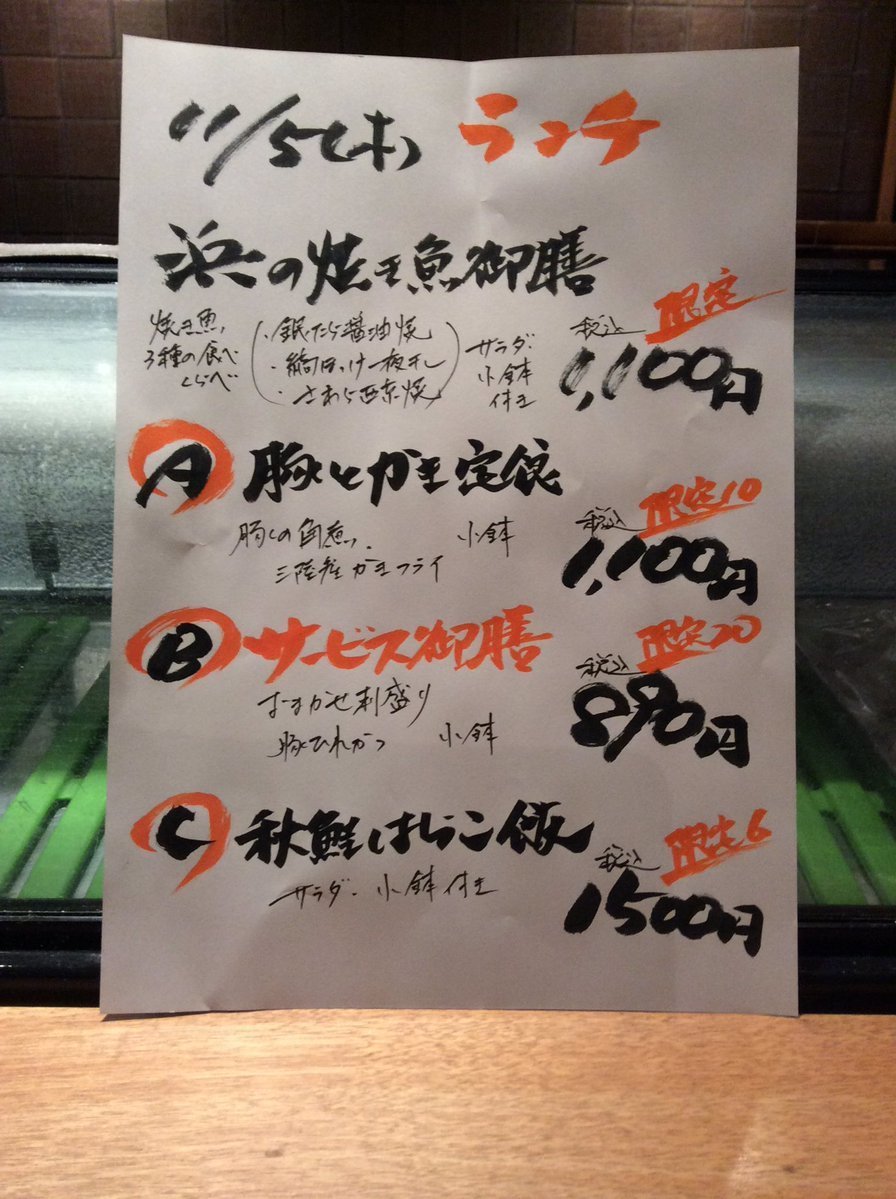 11/5(木) ランチ
浜の焼き魚御膳
限定
税込
1,100円
焼き魚
3種の食べ
くらべ
・銀だら醤油焼
・縞ほっけ一夜干し
・さわら西京焼
サラダ・
小鉢
付き
A 豚とかき定食
限定10
税込
1,100円
豚の角煮、
三陸産かきフライ
小鉢
B サービス御膳
限定20
税込
890円
おまかせ刺盛り
豚ひれかつ 小鉢
C 秋鮭はらこ飯
限定6
税込
1500円
サラダ・小鉢付き